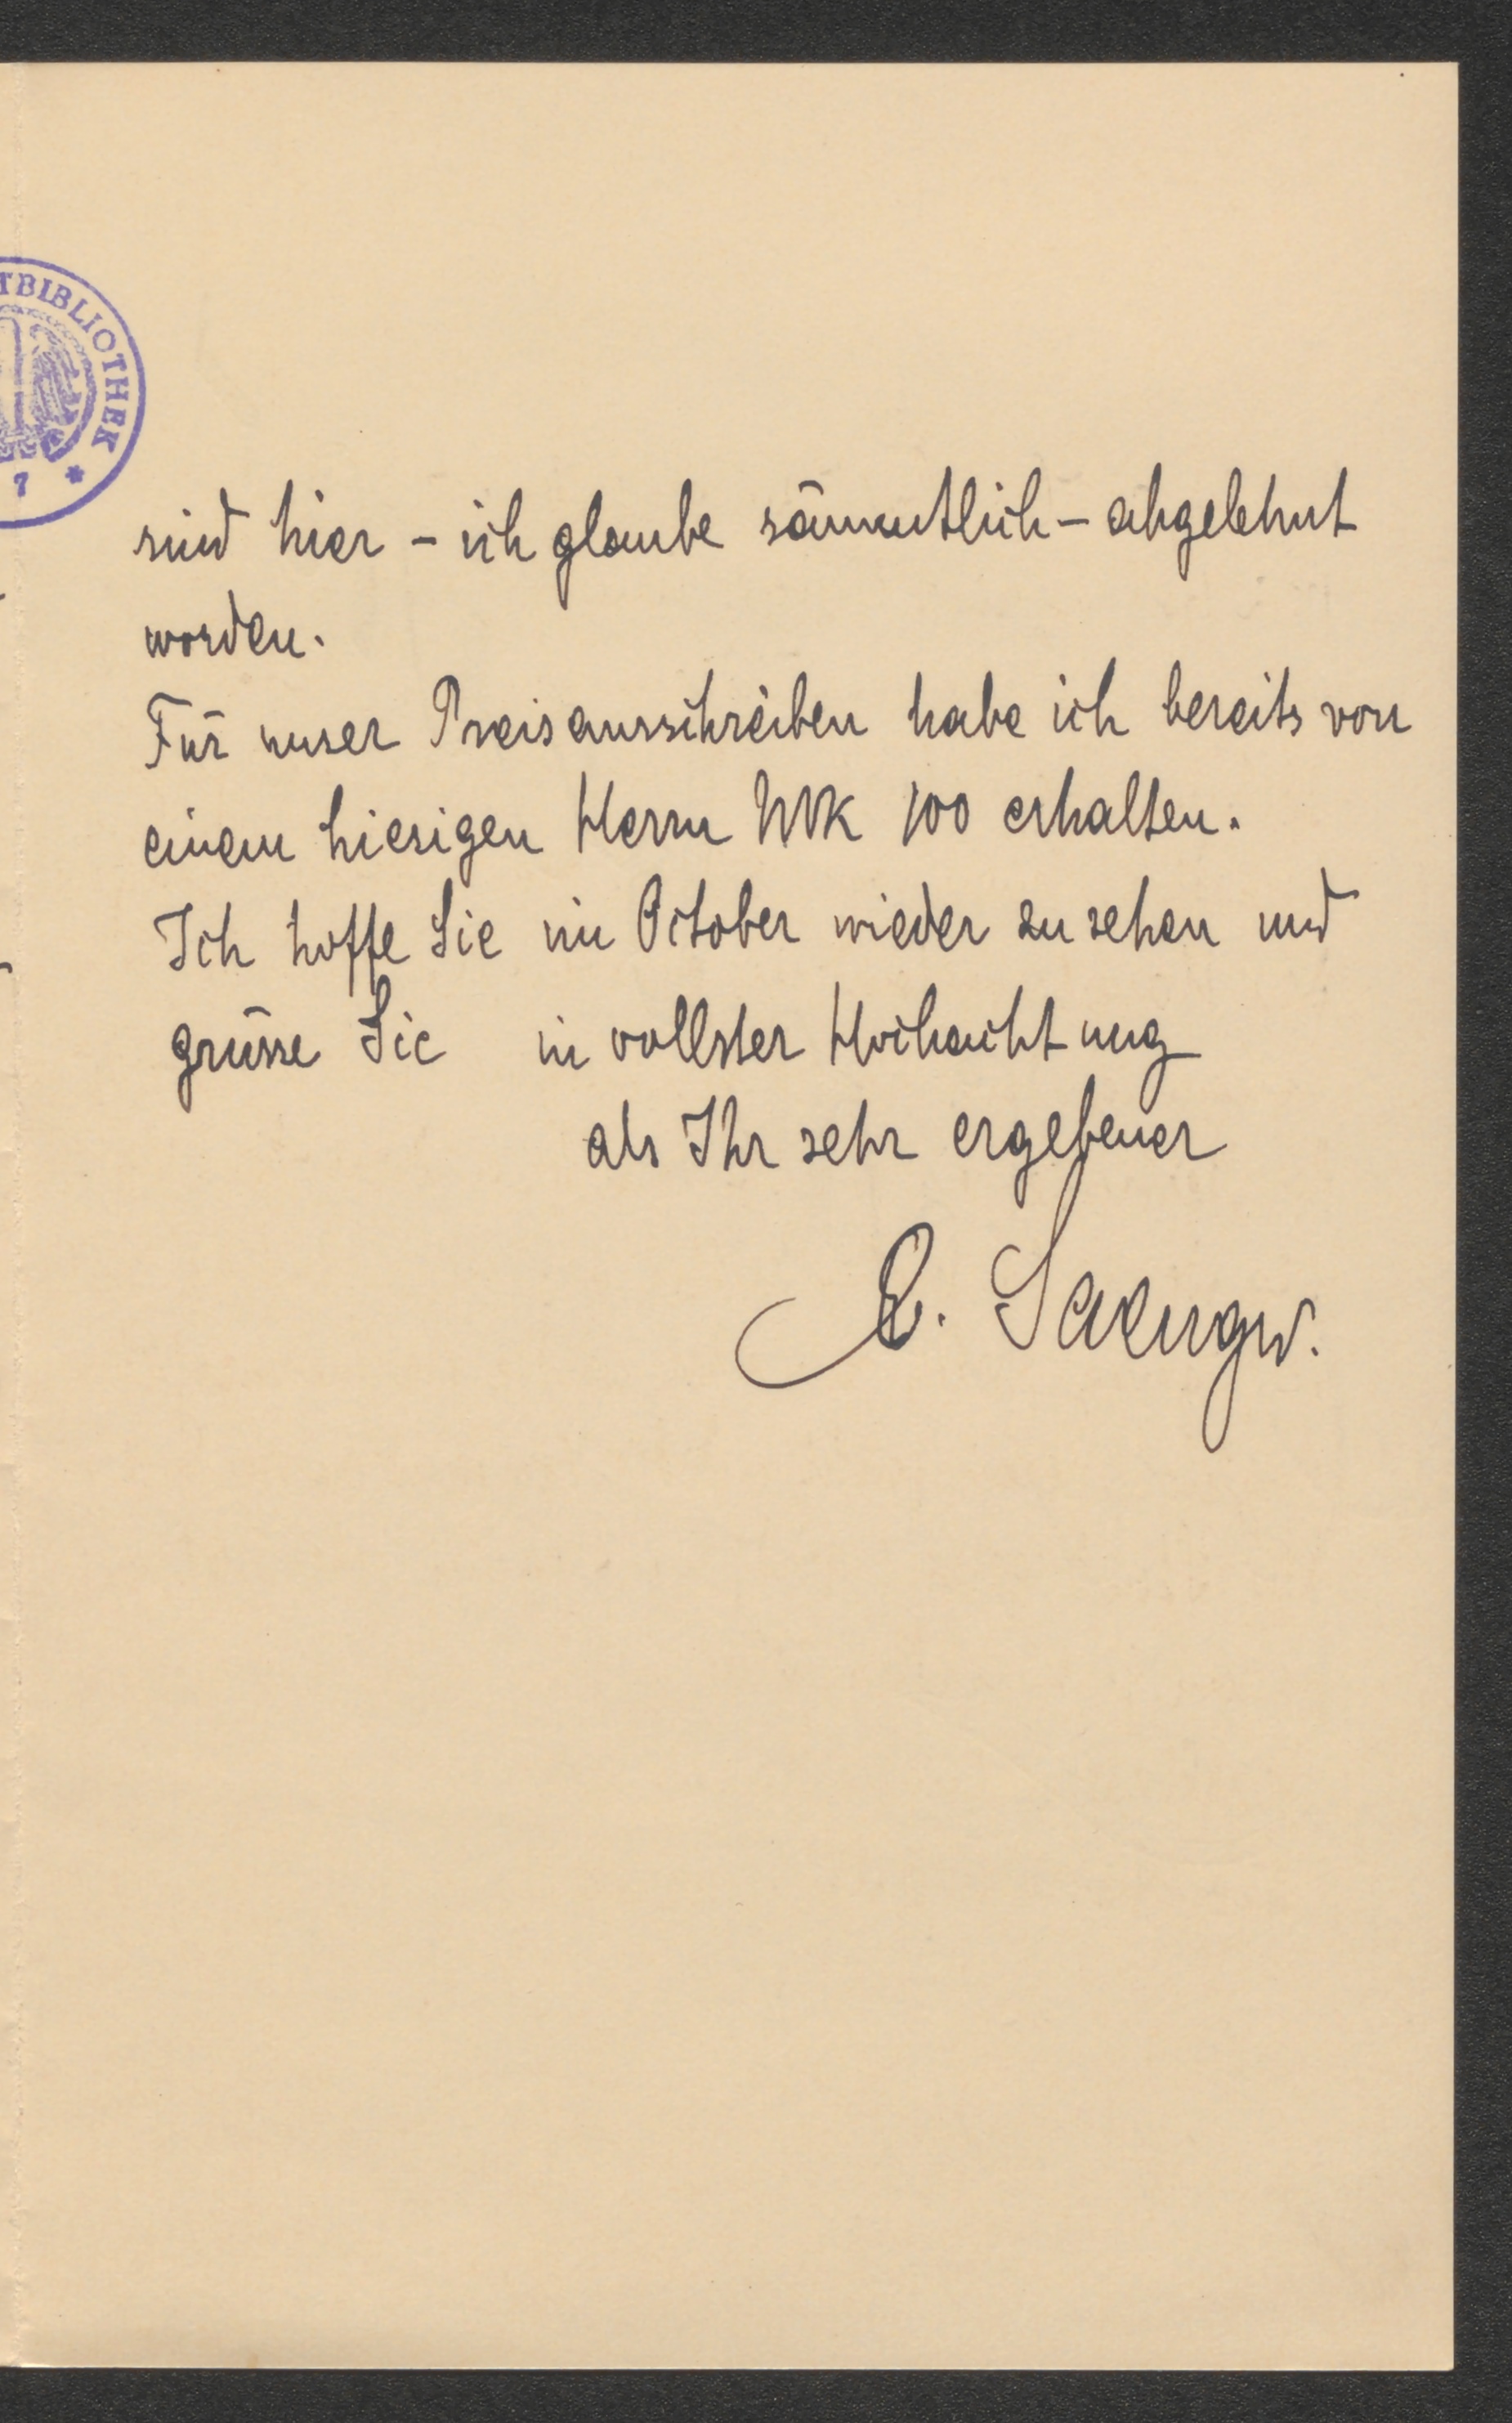 TBIBLIOTHEK
7 *
sind hier – ich glaube sämmtlich – abgelehnt
worden.
Für unser Preisausschreiben habe ich bereits von
einem hiesigen Herrn Mk 100 erhalten.
Ich hoffe Sie im October wieder zu sehen und
grüsse Sie in vollster Hochachtung
als Ihr sehr ergebener
E. Saenger.